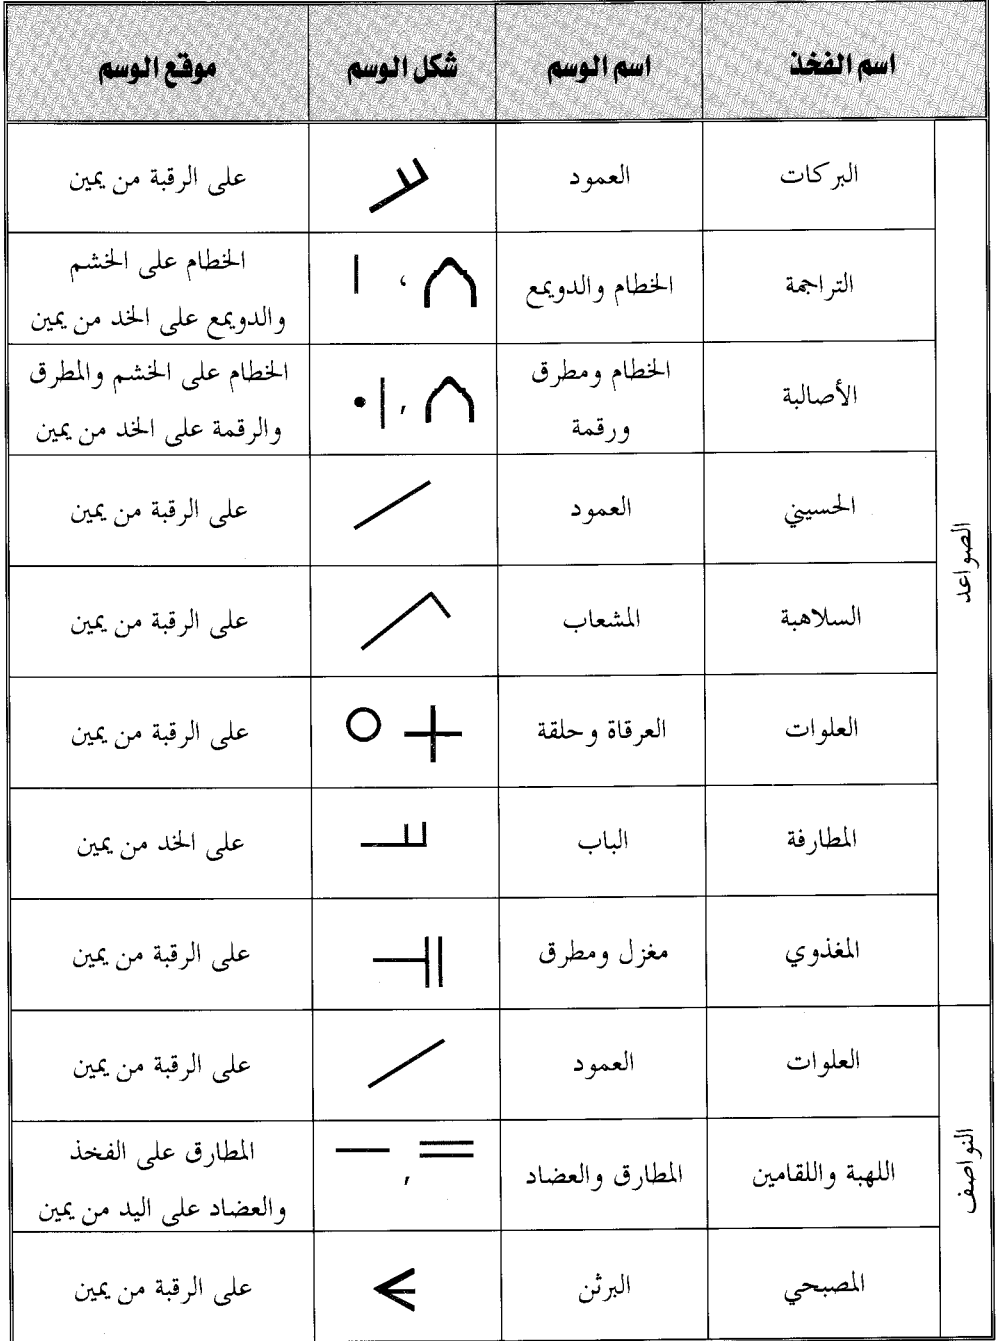 اسم الفخذ اسم الوسم شكل الوسم موقع الوسم
الصواعد
البركات العمود على الرقبة من يمين
التراجمة الخطام والدويمع الخطام على الخشم
والدويمع على الخد من يمين
الأصالبة الخطام ومطرق الخطام على الخشم والمطرق
ورقمة والرقمة على الخد من يمين
الحسيني العمود على الرقبة من يمين
السلاهبة المشعاب على الرقبة من يمين
العلوات العرقاة وحلقة على الرقبة من يمين
المطارفة الباب على الخد من يمين
المغذوي مغزل ومطرق على الرقبة من يمين
النواصف
العلوات العمود على الرقبة من يمين
اللهبة واللقامين المطارق والعضاد المطارق على الفخذ
والعضاد على اليد من يمين
المصبحي البرثن على الرقبة من يمين